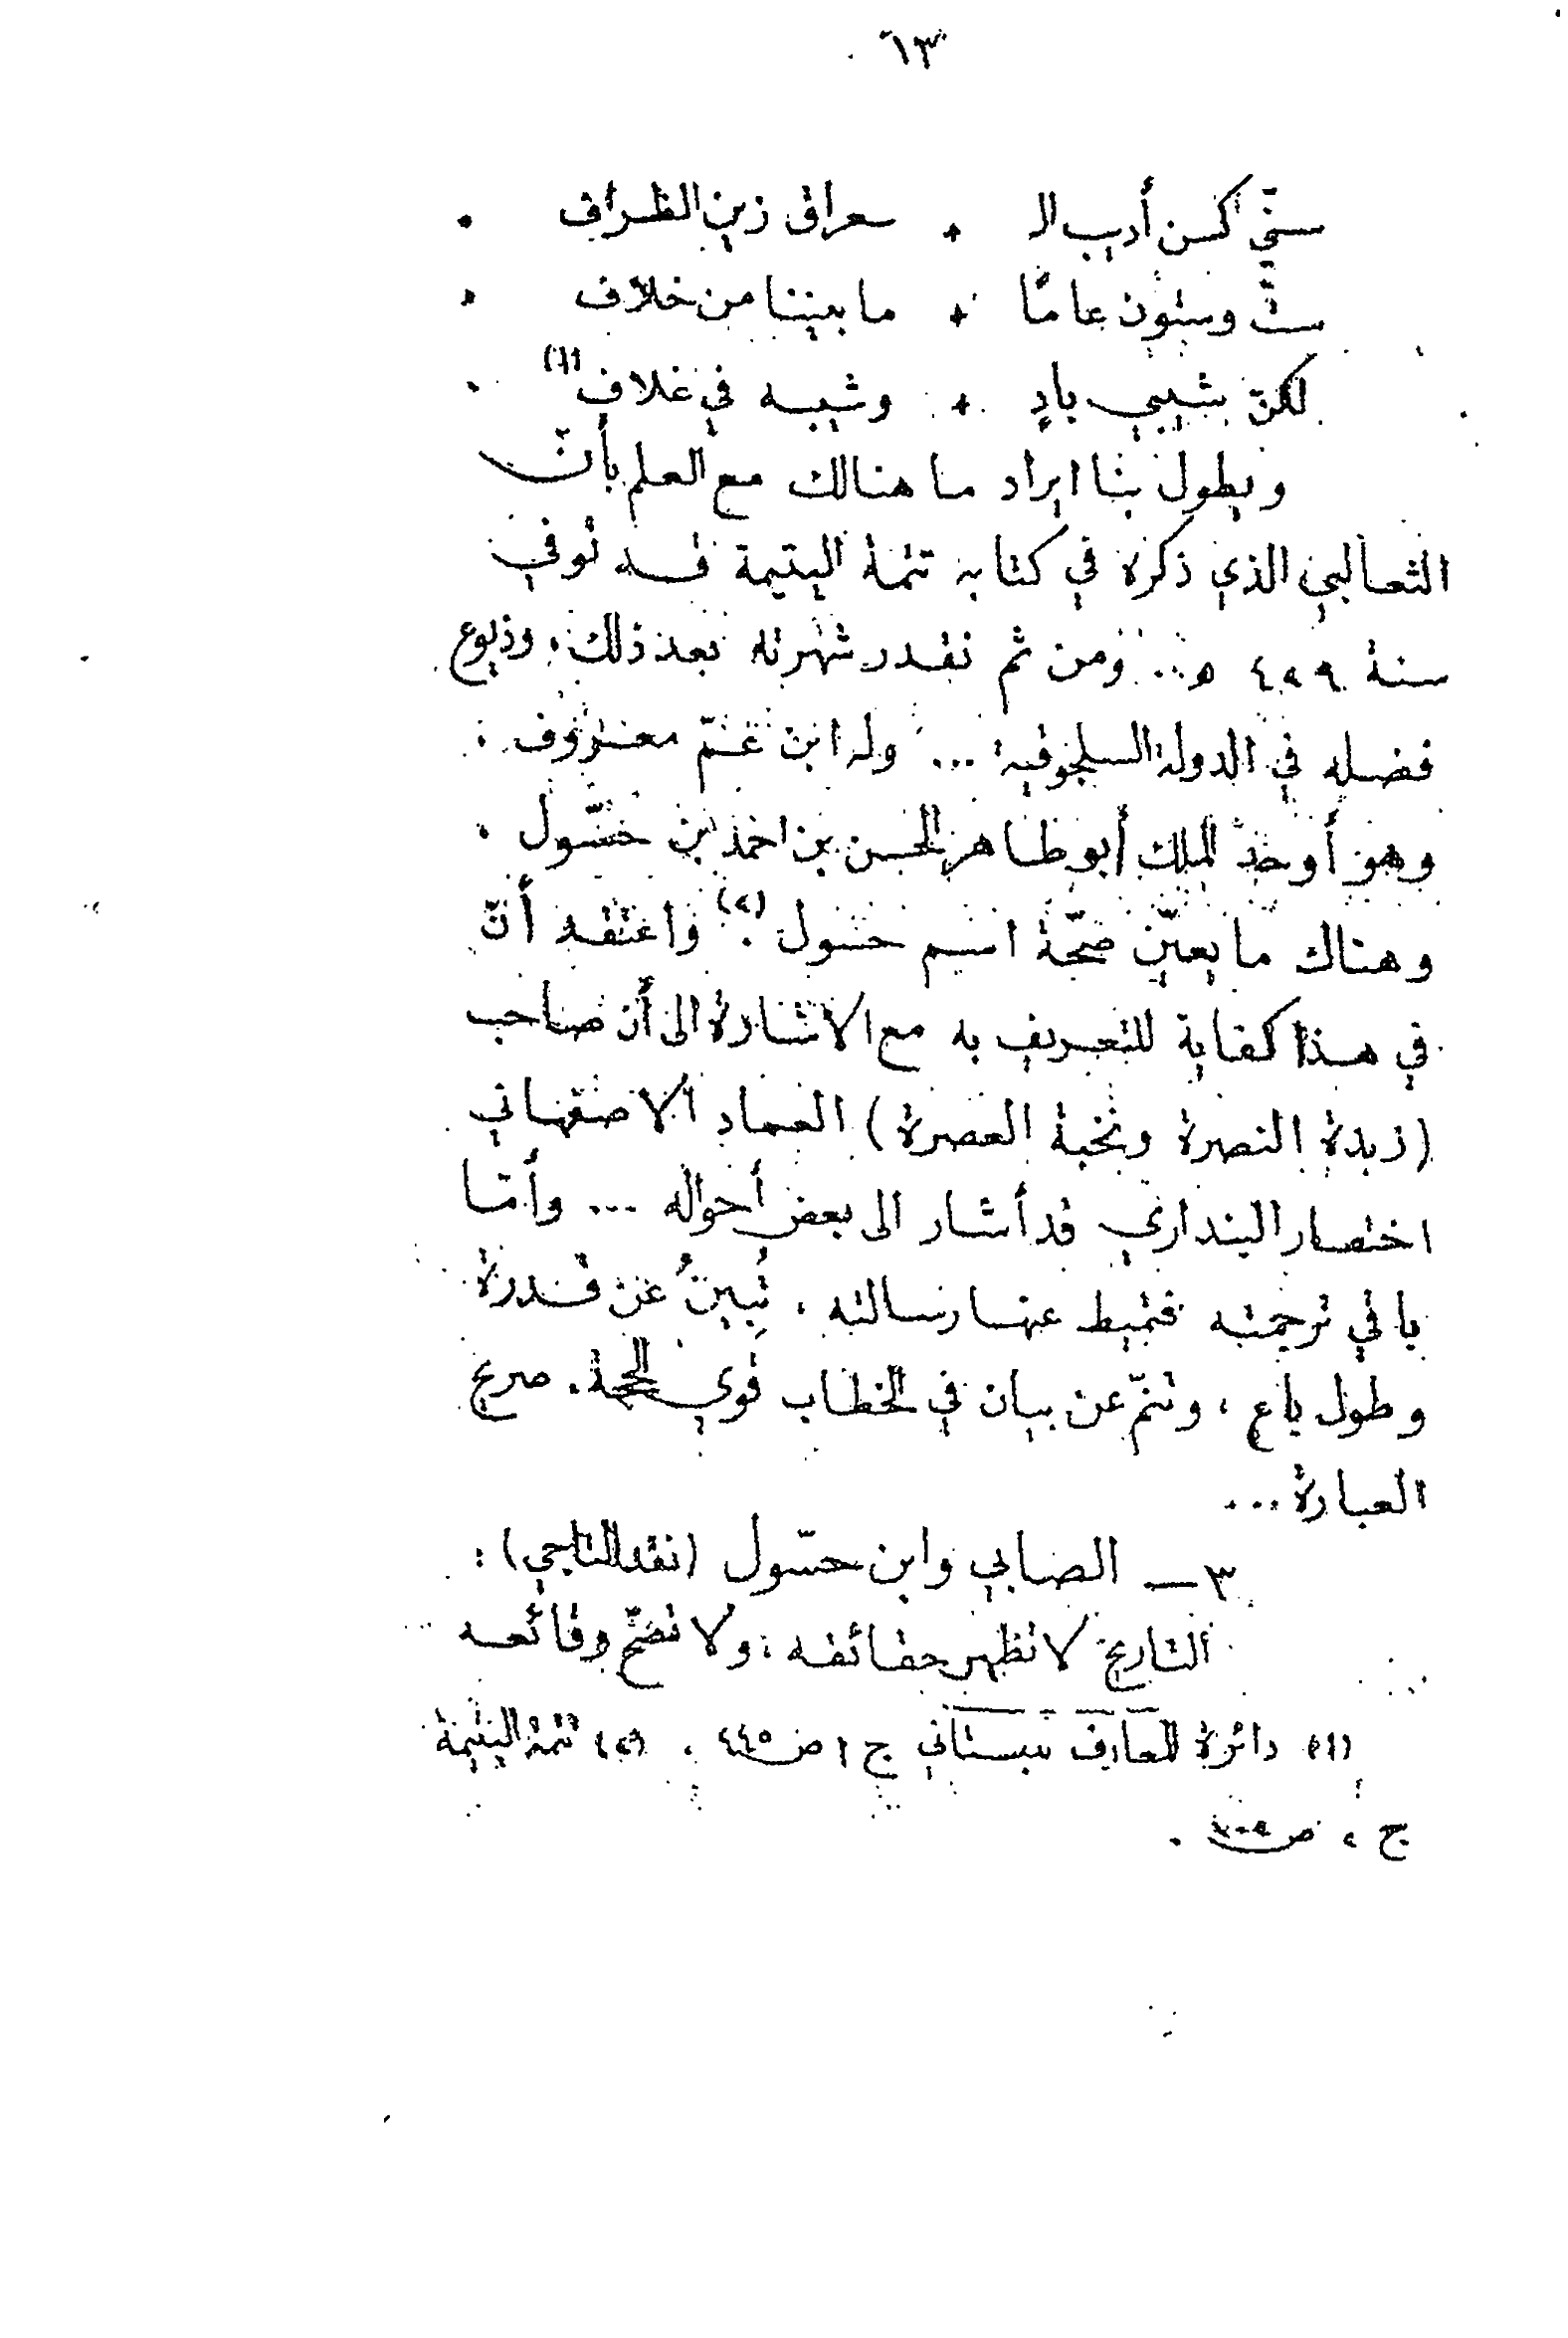 ٦٣
سنّي كسن أديب الـ + ـعراق زين الظراف .
ستّ وستون عامًا + ما بيننا من خلاف .
لكنّ شيبي بادٍ + وشيبه في غلاف (١) .
ويطول بنا ايراد ما هنالك مع العلم بأنّ
الثعالبي الذي ذكره في كتابه تتمة اليتيمة قد توفي
سنة ٤٢٩ هـ .. ومن ثم نقدر شهرته بعد ذلك ، وذيوع
فضله في الدولة السلجوقية ... وله ابن عمّ معروف :
وهو أوحد الملك أبو طاهر الحسن بن احمد بن حسّول .
وهناك ما يعيّن صحّة اسم حسول (٢) . واعتقد أنّ
في هذا كفاية للتعريف به مع الاشارة الى أن صاحب
(زبدة النصرة ونخبة العصرة) العماد الاصفهاني
اختصار البنداري قد أشار الى بعض أحواله ... وأمّا
باقي ترجمته فتميط عنها رسالته ، تُبِينُ عن قدرة
وطول باعٍ ، وتنمّ عن بيان في الخطاب قوي الحجة . صريح
العبارة ...
٣ — الصابي وابن حسّول (نقد التاجي) :
التاريخ لا تظهر حقائقه ، ولا تضحّ وقائعه
(١) دائرة المعارف للبستاني ج ١ ص ٤٤٥ . (٢) تتمة اليتيمة
ج ٢ ص .